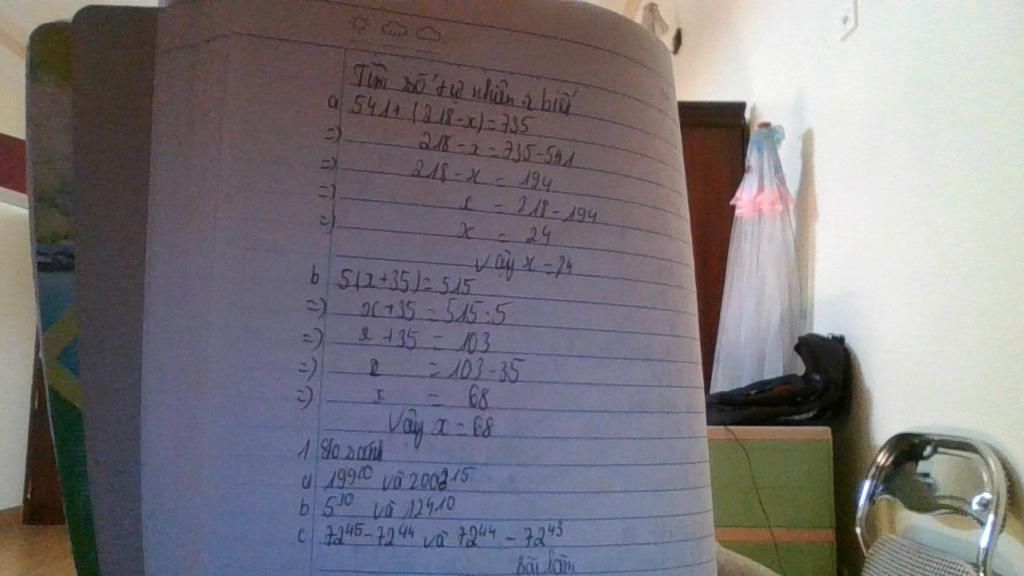 Tìm số tự nhiên x biết
a 541+(218-x)=735
=) 218-x=735-541
=) 218-x = 194
=) x = 218-194
=) x = 24
Vậy x=24
b 5(x+35)=515
=) x+35 = 515:5
=) x+35 = 103
=) x = 103-35
=) x = 68
Vậy x = 68
1 So sánh
a 199²⁰ và 2003¹⁵
b 5³⁰ và 124¹⁰
c 72⁴⁵-72⁴⁴ và 72⁴⁴-72⁴³
Bài làm